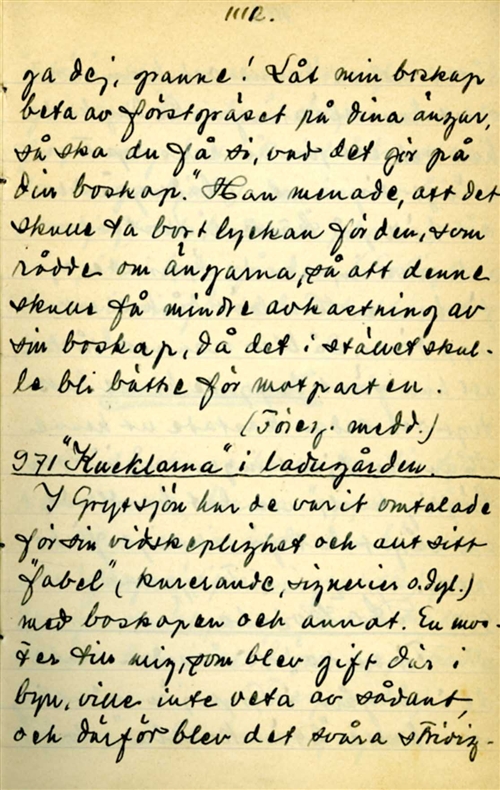 1112.
ga dej, granne! Låt min boskap
beta av förstgräset på dina ängar,
så ska du få si, vad det gör på
din boskap." Han menade, att det
skulle ta bort lyckan för den, som
rådde om ängarna, så att denne
skulle få mindre avkastning av
sin boskap, då det i stället skul-
le bli bättre för motparten.
(Föreg. medd.)
971 "Kucklarna" i ladugården.
I Grytsjön har de varit omtalade
för sin vidskeplighet och allt sitt
"fabel" (kurerande, signerier o.dyl.)
med boskapen och annat. En mos-
ter till mig, som blev gift där i
byn, ville inte veta av sådant,
och därför blev det svåra stridig-